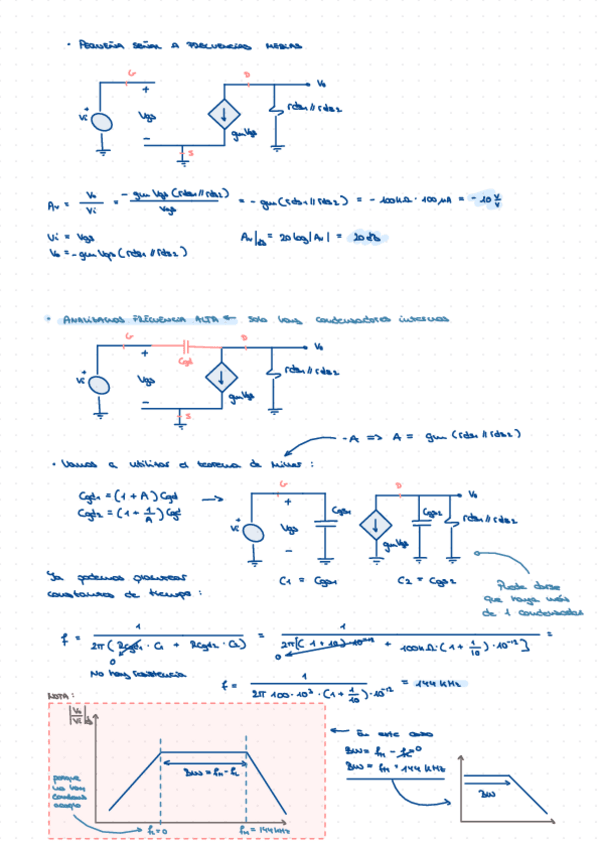 • PEQUEÑA SEÑAL A FRECUENCIAS MEDIAS
G
D
Vo
+
Vi
+
Vgs
gmVgs
rds1//rds2
-
S
Av = Vo/Vi = -gmVgs(rds1//rds2)/Vgs = -gm(rds1//rds2) = -100kΩ·100µA = -10 V/V
Vi = Vgs
Av|dB = 20log|Av| = 20dB
Vo = -gmVgs(rds1//rds2)
• ANALIZAMOS FRECUENCIA ALTA ← solo hay condensadores internos
G
D
Vo
+
Cgd
Vi
+
Vgs
gmVgs
rds1//rds2
-
S
-A => A = gm(rds1//rds2)
• Vamos a utilizar el teorema de Miller:
Cgd1 = (1+A)Cgd
Cgd2 = (1+1/A)Cgd
→
G
D
Vo
+
Vi
+
Vgs
Cgd1
gmVgs
Cgd2
rds1//rds2
-
C1 = Cgd1
C2 = Cgd2
Ya podemos plantear
constantes de tiempo:
Puede darse
que haya más
de 1 condensador
f = 1/2π(RCgd1·C1 + RCgd2·C2) = 1/2π[C(1+10)·10^-12 + 100kΩ·(1+1/10)·10^-12] =
0
0
No hay resistencia
f = 1/2π·100·10^3·(1+1/10)·10^-12 = 144 kHz
NOTA:
|Vo/Vi|dB
BW = fH - fL
porque
no hay
condens
acoplo
fL=0
fH = 144kHz
← En este caso
BW = fH - fL=0
BW = fH = 144 kHz
BW